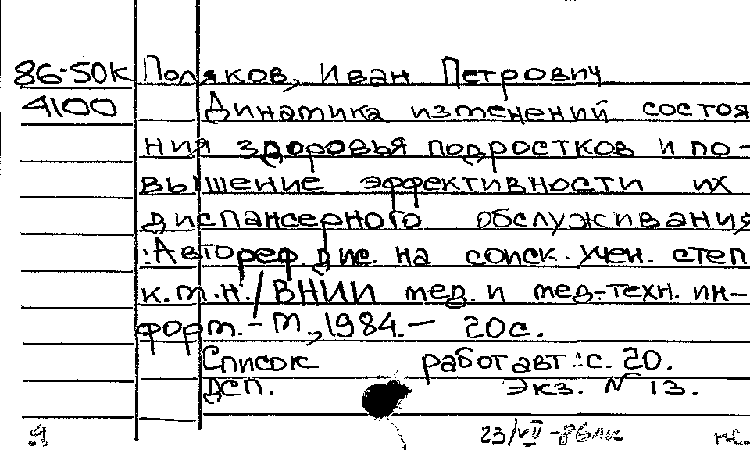 86-50К Поляков, Иван Петрович
4100 Динамика изменений состоя
ния здоровья подростков и по-
вышение эффективности их
диспансерного обслуживания
:Автореф. дис. на соиск. учен. степ
к.м.н./ ВНИИ мед. и мед-техн. ин-
форм.-М., 1984.- 20с.
Список работ авт.:с. 20.
ДСП. Экз. № 13.
23/VII-86